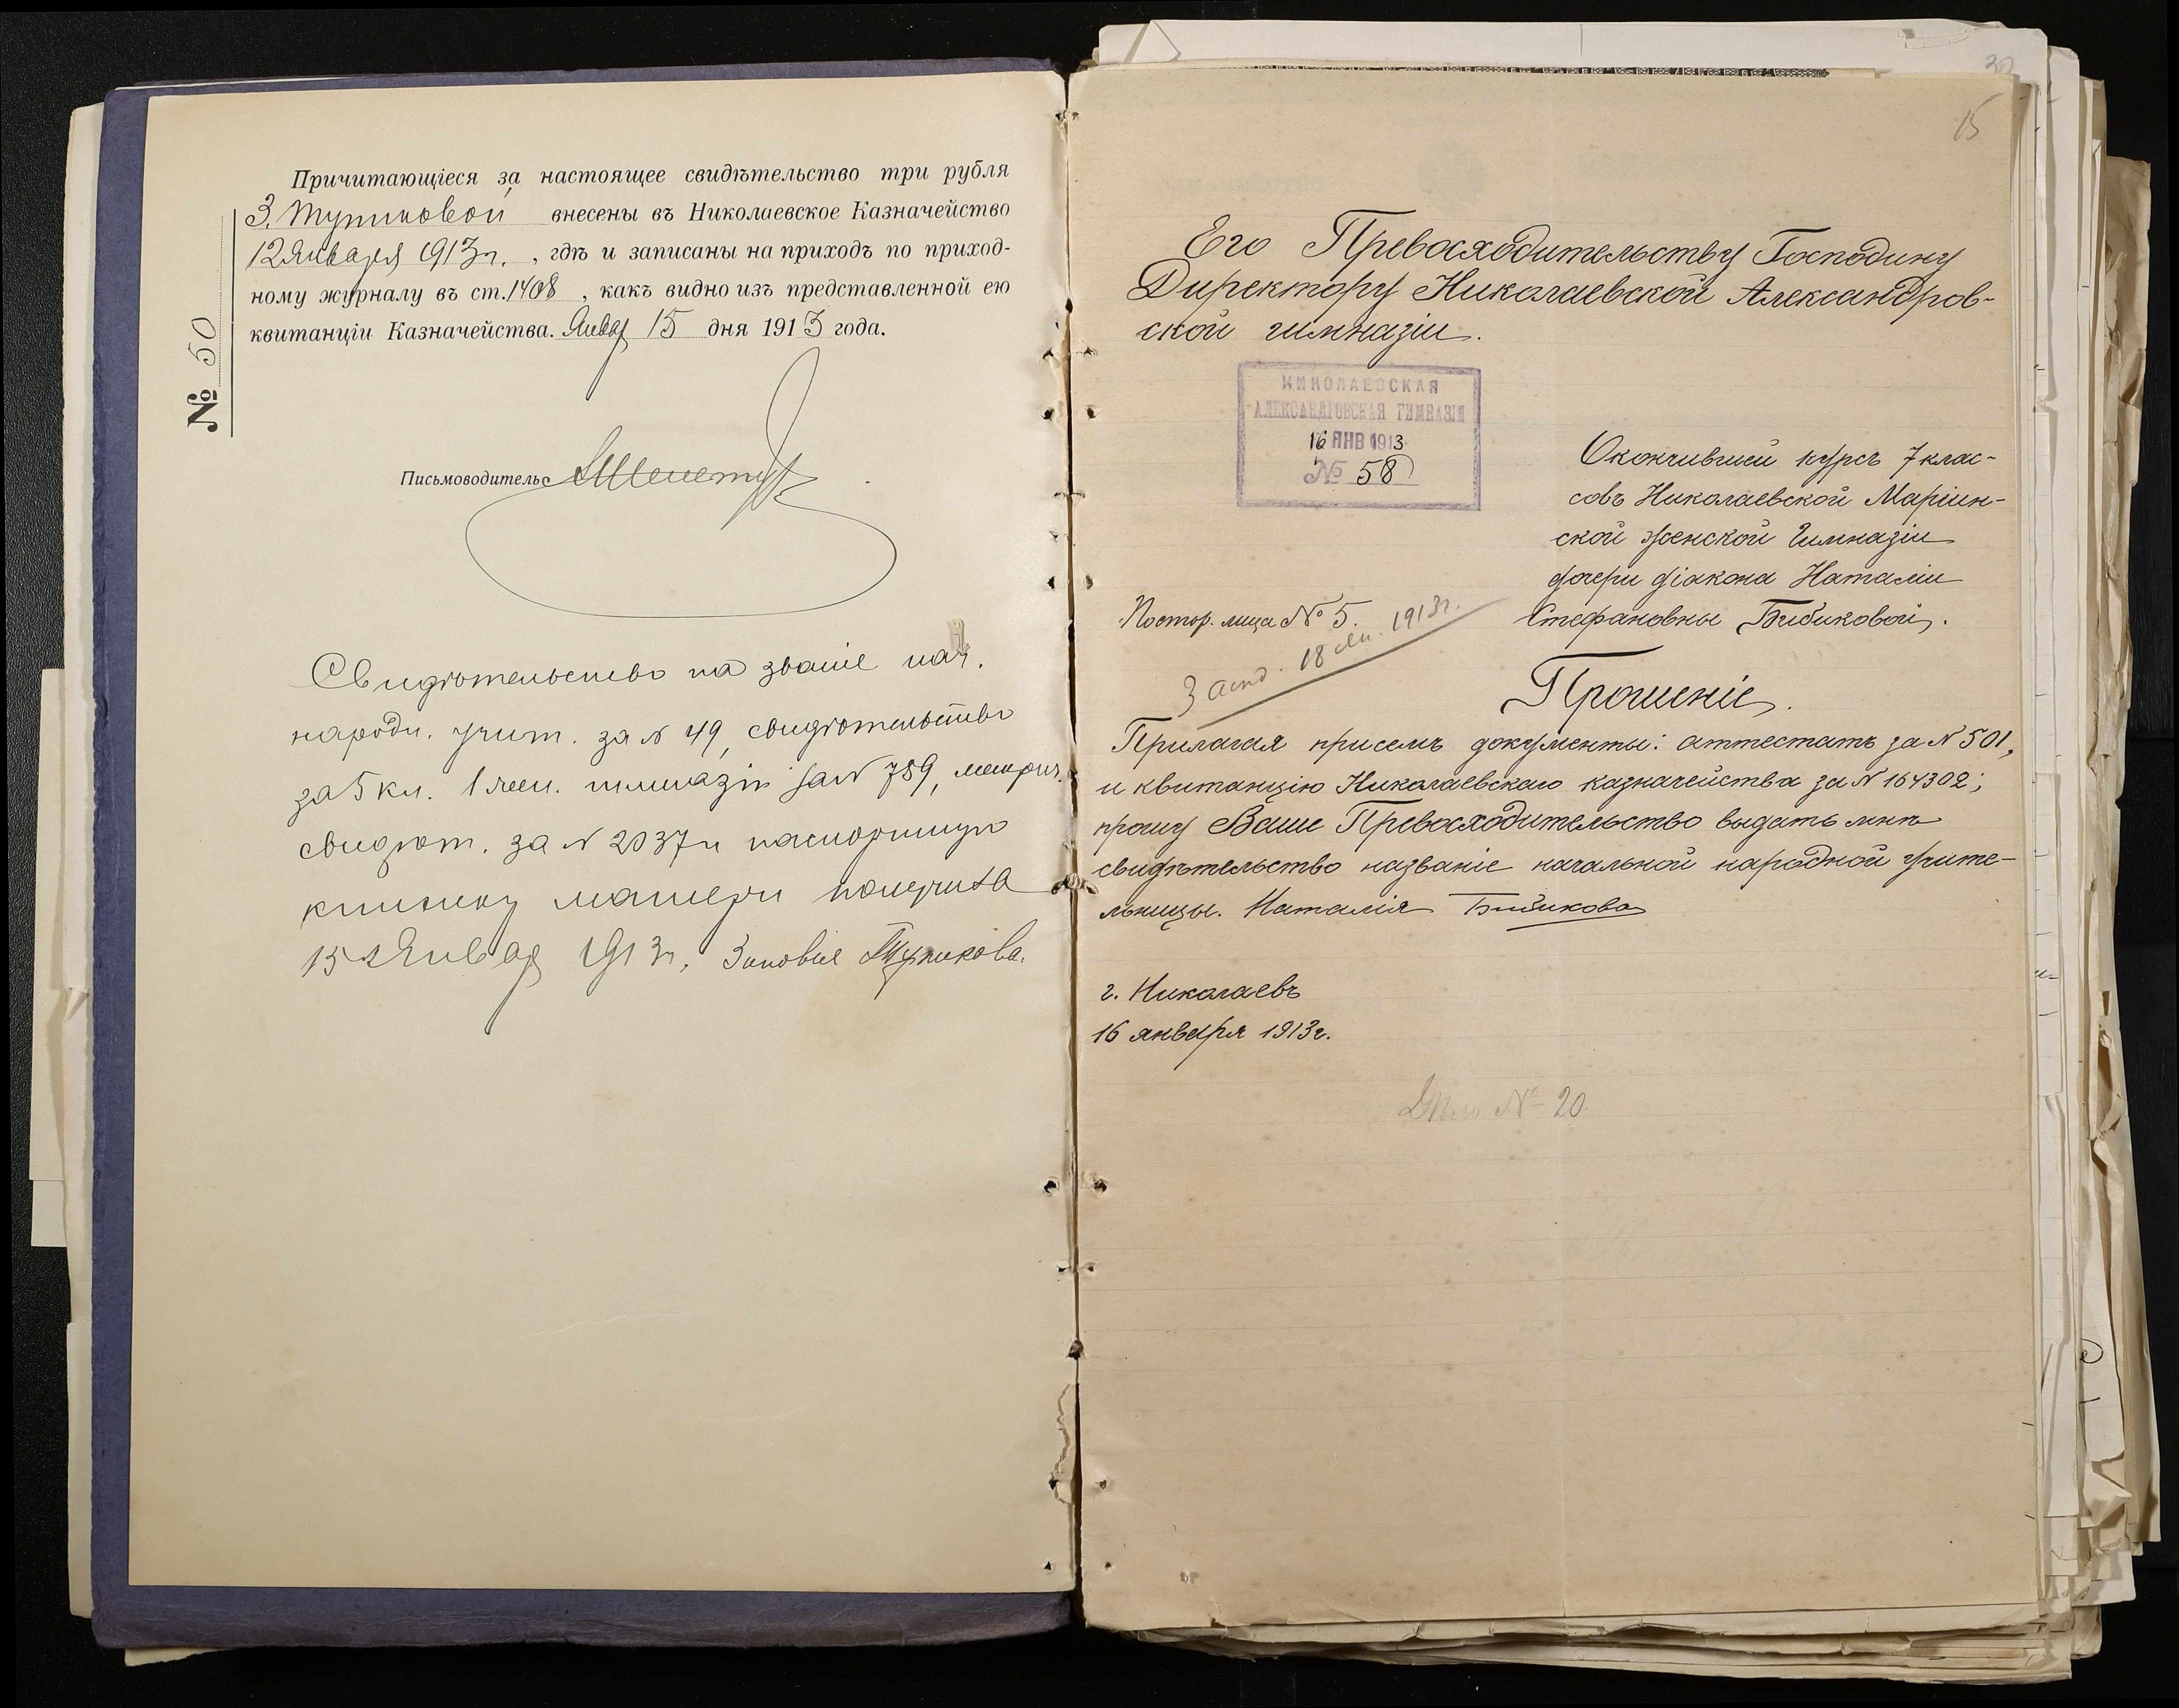 Причитающіеся за настоящее свидѣтельство три рубля
З. Тупиковой внесены въ Николаевское Казначейство
12 Января 1913 г. , гдѣ и записаны на приходъ по приход-
ному журналу въ ст. 1408 , какъ видно изъ представленной ею
квитанціи Казначейства. Январ 15 дня 1913 года.
№ 50
Письмоводитель
Свидѣтельство на званіе нач.
народн. учит. за N 49, свидѣтельство
за 5 кл. 1 жен. гимназіи за N 789, метрич.
свидѣт. за N 2037 и паспортную
книжку матери получила
15 Января 1913 г. Зиновія Тупикова.
30
15
Его Превосходительству Господину
Директору Николаевской Александров-
ской гимназіи.
НИКОЛАЕВСКАЯ
АЛЕКСАНДРОВСКАЯ ГИМНАЗІЯ
16 ЯНВ 1913
№ 58
Окончившей курсъ 7 клас-
совъ Николаевской Маріин-
ской женской Гимназіи
дочери діакона Наталіи
Стефановны Бибиковой.
Постор. лица № 5.
18 Ян. 1913 г.
Прошеніе.
Прилагая присемъ документы: аттестатъ за N 501,
и квитанцію Николаевскаго казначейства за N 164302;
прошу Ваше Превосходительство выдать мнѣ
свидѣтельство названіе начальной народной учите-
льницы. Наталія Бибикова
г. Николаевъ
16 января 1913 г.
Дѣло № 20.